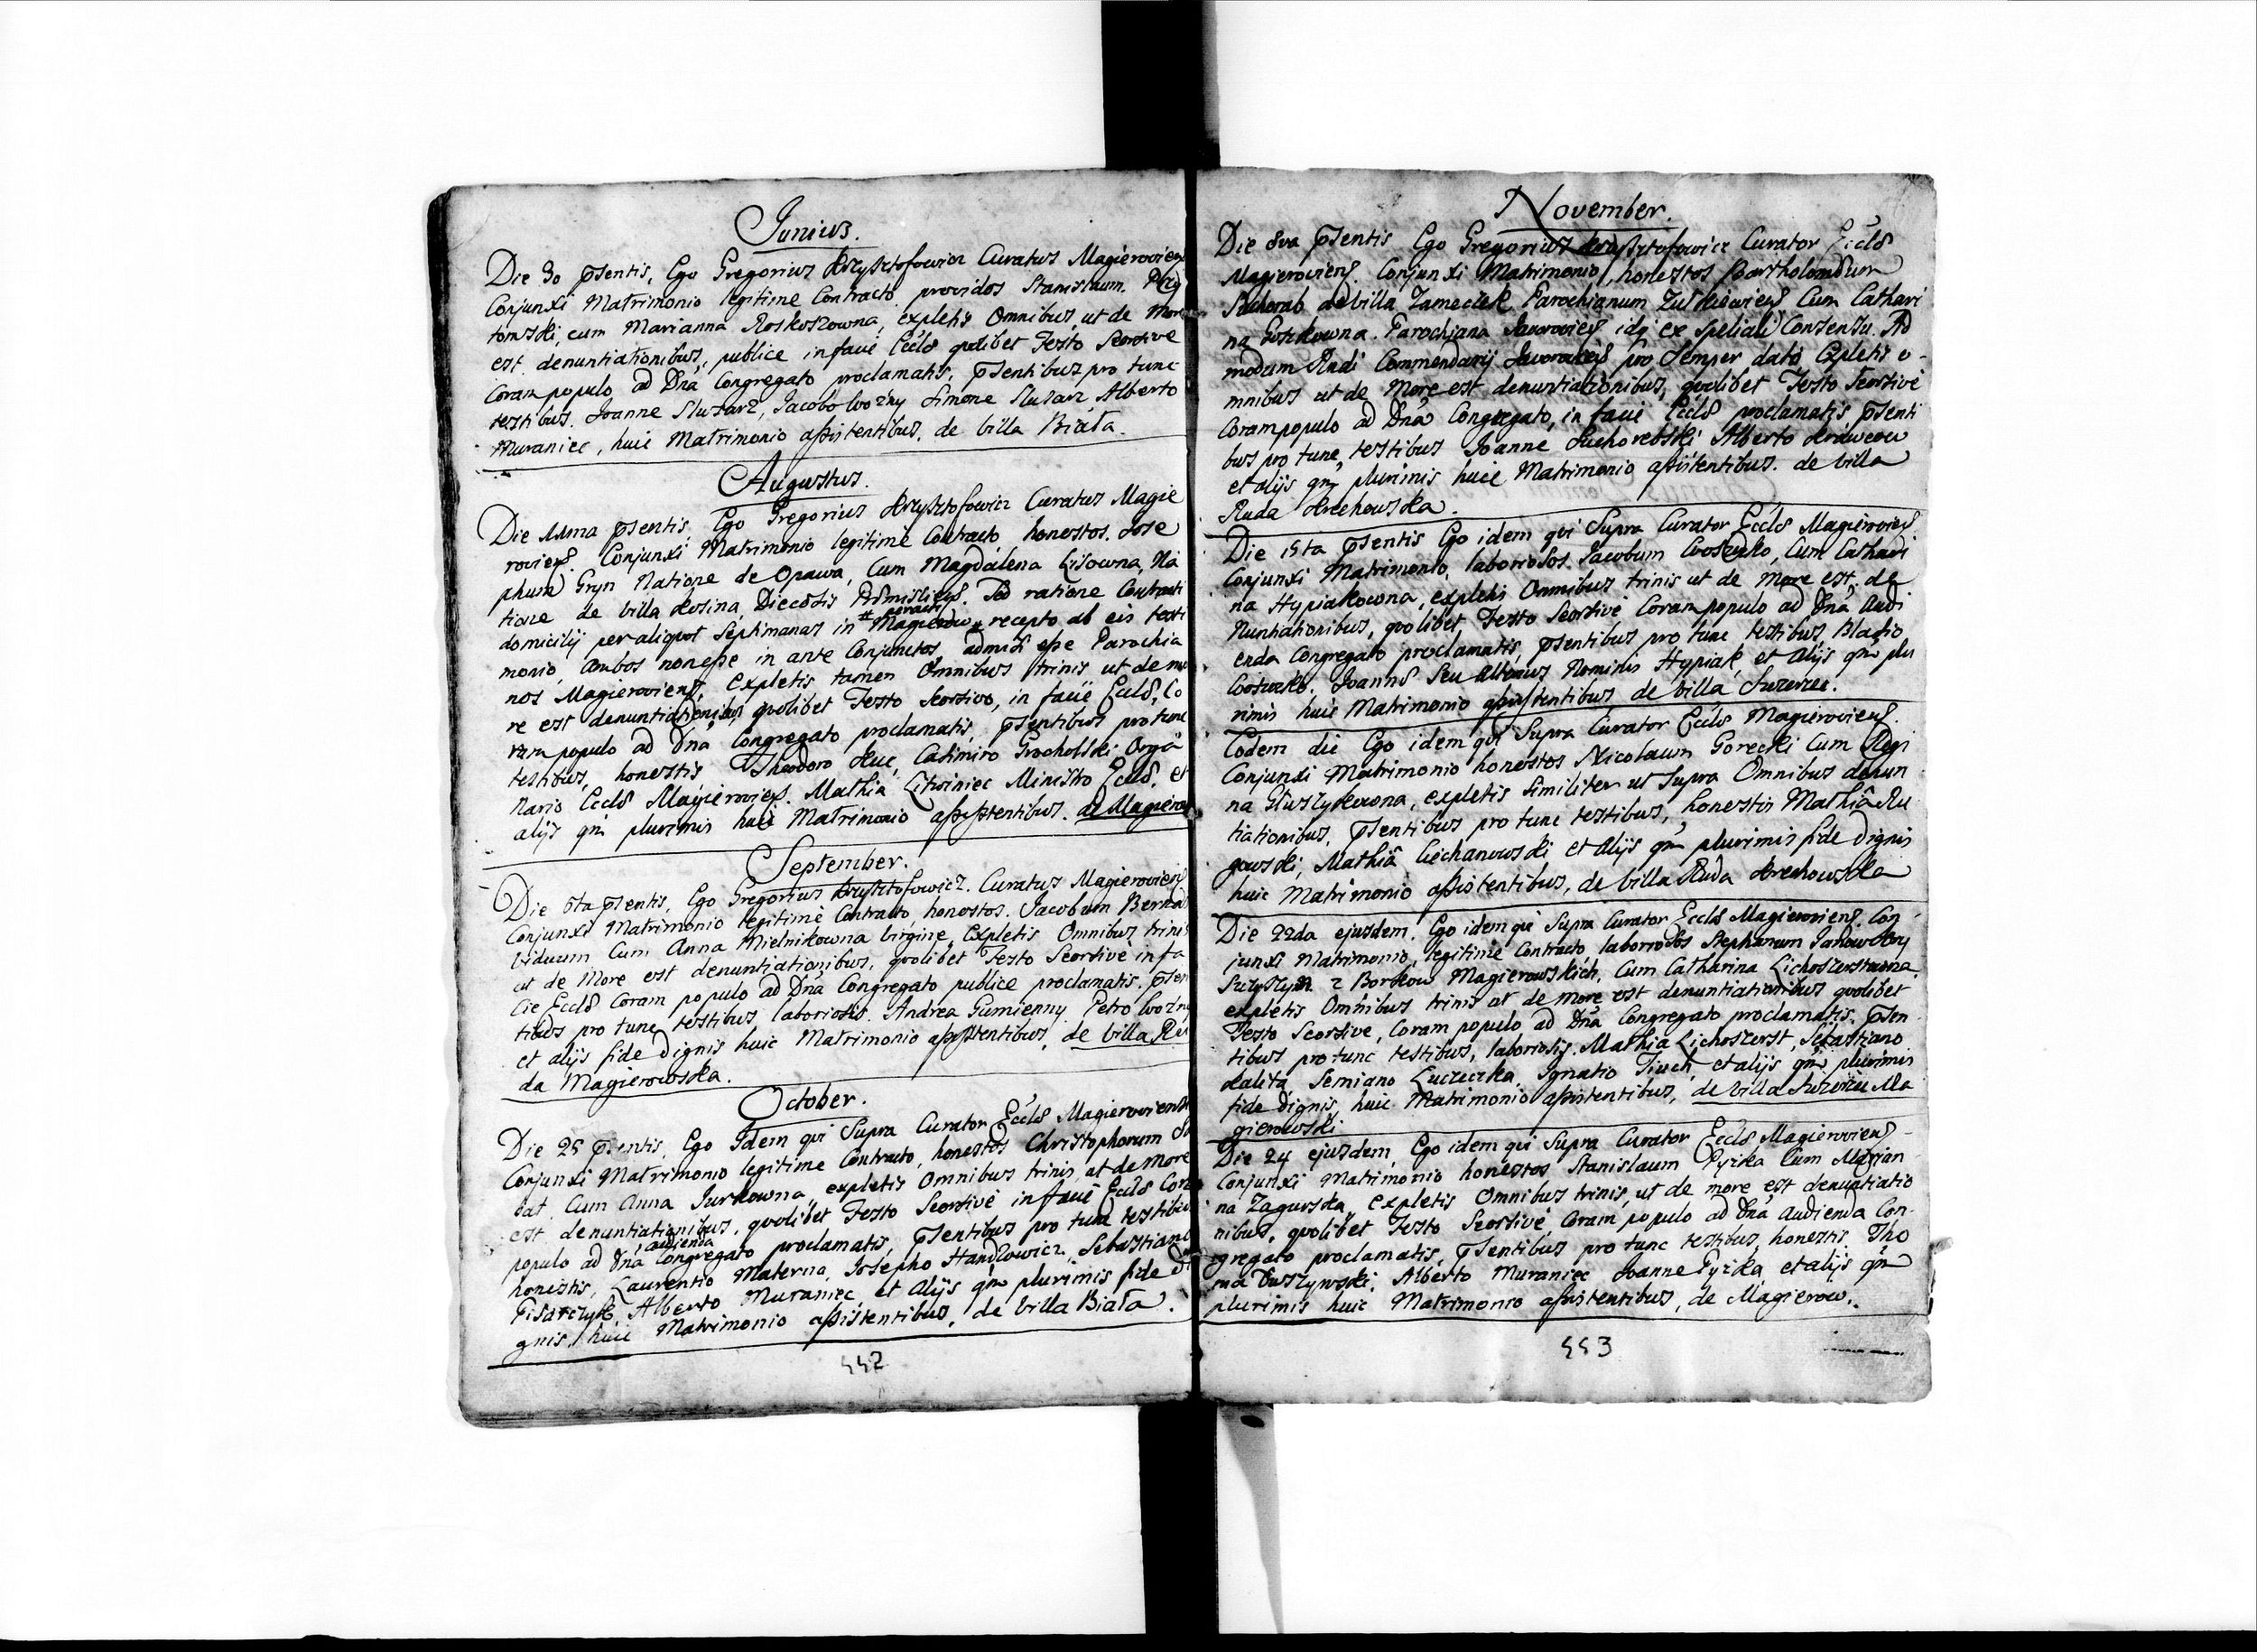 Junius.
Die 30 pSentis, Ego Gregorius Krzysztofowicz Curatus Magierovien
Conjunxi Matrimonio legitime Contracto providos Stanislaum
tomski, cum Marianna Roskoszowna, expletis Omnibus, ut de More
est denuntiationibus, publice in facie Eccls quolibet Festo Seorsive
Coram populo ad Dna Congregato proclamatis, pSentibus pro tunc
testibus Joanne Slusarz, Jacobo Wozny Simone Slusarz Alberto
Muraniec, huic Matrimonio assistentibus, de Villa Biała.
Augustus.
Die pSentis, Ego Gregorius Krzysztofowicz Curatus Magie
roviens. Conjunxi Matrimonio legitime Contracto honestos. Jose
phum Gryn Natione de Opawa, Cum Magdalena Lisowna, Na
tione de Villa Kosina Diecesis Prsmisliens. Sed ratione Contracti
domicilij per aliquot Septimanas in Magierow recepto ab eis testi
monio, ambos non esse in ante Conjunctos, admisi esse Parochia
nos Magieroviens, Expletis tamen Omnibus trinis ut de mo
re est denuntiationibus quolibet Festo Seorsive, in facie Eccls, Co
ram populo ad Dna Congregato proclamatis, pSentibus pro tunc
testibus, honestis Theodoro Kuc, Casimiro Grocholski Orga
nario Eccls Magieroviens. Mathia Litwiniec Ministro Eccls, et
alijs qm plurimis huic Matrimonio assistentibus. de Magierow
September.
Die 6ta pSentis, Ego Gregorius Krzysztofowicz. Curatus Magieroviens
Conjunxi Matrimonio legitime Contracto, honestos. Jacobum Berna
Viduum Cum Anna Mielnikowna Virgine, Expletis Omnibus trinis
ut de More est denuntiationibus, quolibet Festo Seorsive in fa
cie Eccls Coram populo ad Dna Congregato publice proclamatis. pSen
tibus pro tunc testibus laboriosis. Andrea Gumienny Petro Wozny
et alijs fide dignis huic Matrimonio assistentibus, de Villa Ru
da Magierowska.
October.
Die 25 pSentis, Ego Idem qui Supra Curator Eccls Magieroviens
Conjunxi Matrimonio legitime Contracto, honestos Christophorum
dat Cum Anna Jurkowna, expletis Omnibus trinis, ut de More
est denuntiationibus, quolibet Festo Seorsive in facie Eccls Coram
populo ad Dna audienda Congregato proclamatis, pSentibus pro tunc testibus
honestis, Laurentio Materna, Josepho Handlowicz, Sebastiano
Pisarczyk, Alberto Muraniec, et Alijs qm plurimis fide di
gnis, huic Matrimonio assistentibus, de Villa Biała.
552
November.
Die 8va pSentis Ego Gregorius Krzysztofowicz Curator Eccls
Magieroviens. Conjunxi Matrimonio, honestos Bartholomaeum
Suchorab de Villa Zameczek Parochianum Cum Cathari
na Parochiana idq ex Speciali Consensu. Ad
modum Rndi Commendarij pro Semper dato, Expletis o
mnibus ut de More est denuntiationibus, quolibet Festo Seorsive
Coram populo ad Dna Congregato, in facie Eccls proclamatis pSenti
bus pro tunc, testibus Joanne Suchorebski Alberto Krawcow
et alijs qm plurimis huic Matrimonio assistentibus. de Villa
Ruda Krechowska.
Die 15ta pSentis Ego idem qui Supra Curator Eccls Magieroviens
Conjunxi Matrimonio, laboriosos Jacobum Woszczko, Cum Cathari
na Hypiakowna, expletis Omnibus trinis ut de more est, de
Nuntiationibus, quolibet Festo Seorsive Coram populo ad Dna Audi
enda Congregato proclamatis, pSentibus pro tunc testibus Blasio
Joannes Seu alterius Nominis Hypiak, et Alijs qm plu
rimis huic Matrimonio assistentibus de Villa Szczerzec.
Eodem die Ego idem qui Supra Curator Eccls Magieroviens.
Conjunxi Matrimonio honestos Nicolaum Gorecki Cum Regi
na Głuszykowna, expletis Similiter ut Supra Omnibus denun
tiationibus, pSentibus pro tunc testibus, honestis Mathia Ru
gowski, Mathia Ciechanowski et Alijs qm plurimis fide dignis
huic Matrimonio assistentibus, de Villa Ruda Krechowska
Die 22da ejusdem. Ego idem qui Supra Curator Eccls Magieroviens. Con
junxi Matrimonio, legitime Contracto laboriosos Stephanum Janow
z Borkow Magierowskich, Cum Catharina Lichoszerstowna
expletis Omnibus trinis ut de more est denuntiationibus quolibet
Festo Seorsive, Coram populo ad Dna Congregato proclamatis. pSen
tibus pro tunc testibus, laboriosis. Mathia Lichoszerst, Sebastiano
Kalita Semiano Luczeczka Ignatio Tiuch, et alijs qm plurimis
fide dignis, huic Matrimonio assistentibus, de Villa Szczerzec Ma
gierowski
Die 24 ejusdem, Ego idem qui Supra Curator Eccls Magieroviens
Conjunxi Matrimonio honestos Stanislaum Pyzka Cum Marian
na Zagurska, expletis Omnibus trinis, ut de more est denuntiatio
nibus, quolibet Festo Seorsive, Coram populo ad Dna Audienda Con
gregato proclamatis, pSentibus pro tunc testibus, honestis, Tho
ma Duszynski, Alberto Muraniec Joanne Pyzka, et alijs qm
plurimis huic Matrimonio assistentibus, de Magierow.
553